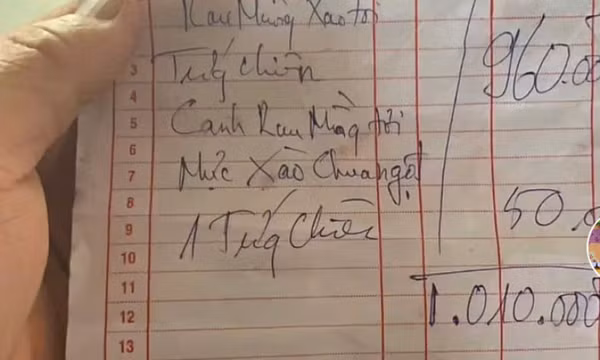 Rau Muống Xào tỏi
3 Trứg chiên 960.00
4
5 Canh Rau Mồng tơi
6
7 Mực Xào Chua ngọt
8 50.0
9 1 Trứg Chiên
10
11
12 1.010.000
13